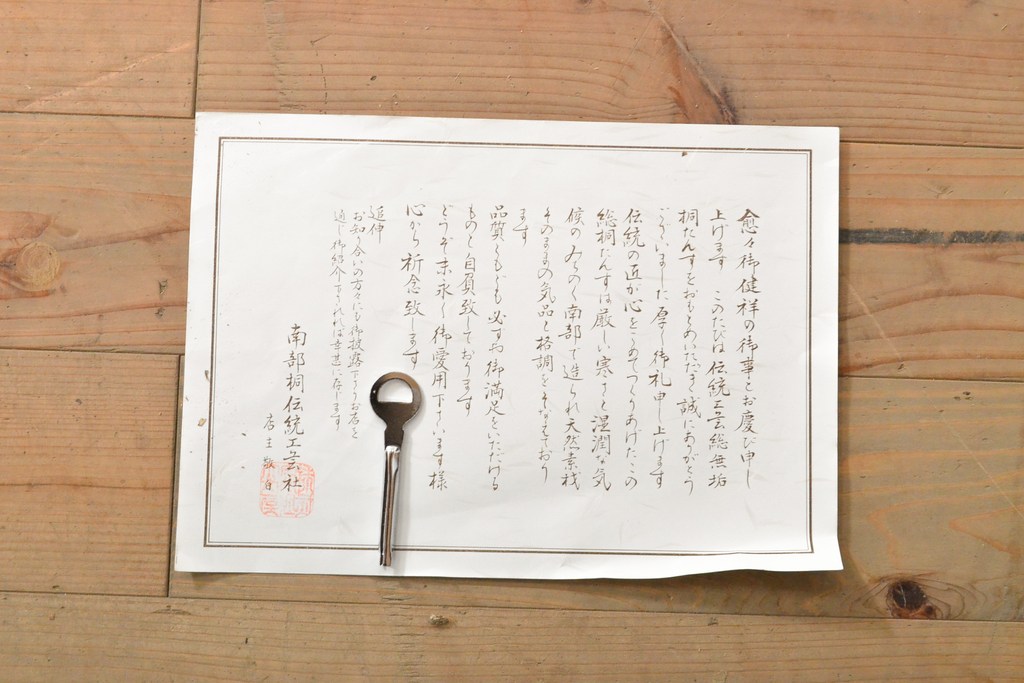 愈々御健祥の御事とお慶び申し
上げます このたびは 伝統工芸総無垢
桐たんすをおもとめいただき誠にありがとう
ございました厚く御礼申し上げます
伝統の匠が心をこめてつくりあげたこの
総桐たんすは厳しい寒さと湿潤な気
候のみちのく南部で造られ天然素材
そのままの気品と格調をそなえており
ます
品質ともども必ずお御満足をいただける
ものと自負致しております
どうぞ末永く御愛用下さいます様
心から祈念致します
追伸
お知り合いの方々にも御披露下さりお店を
通し御紹介下されれば幸甚に存じます
南部桐伝統工芸社
店主敬白